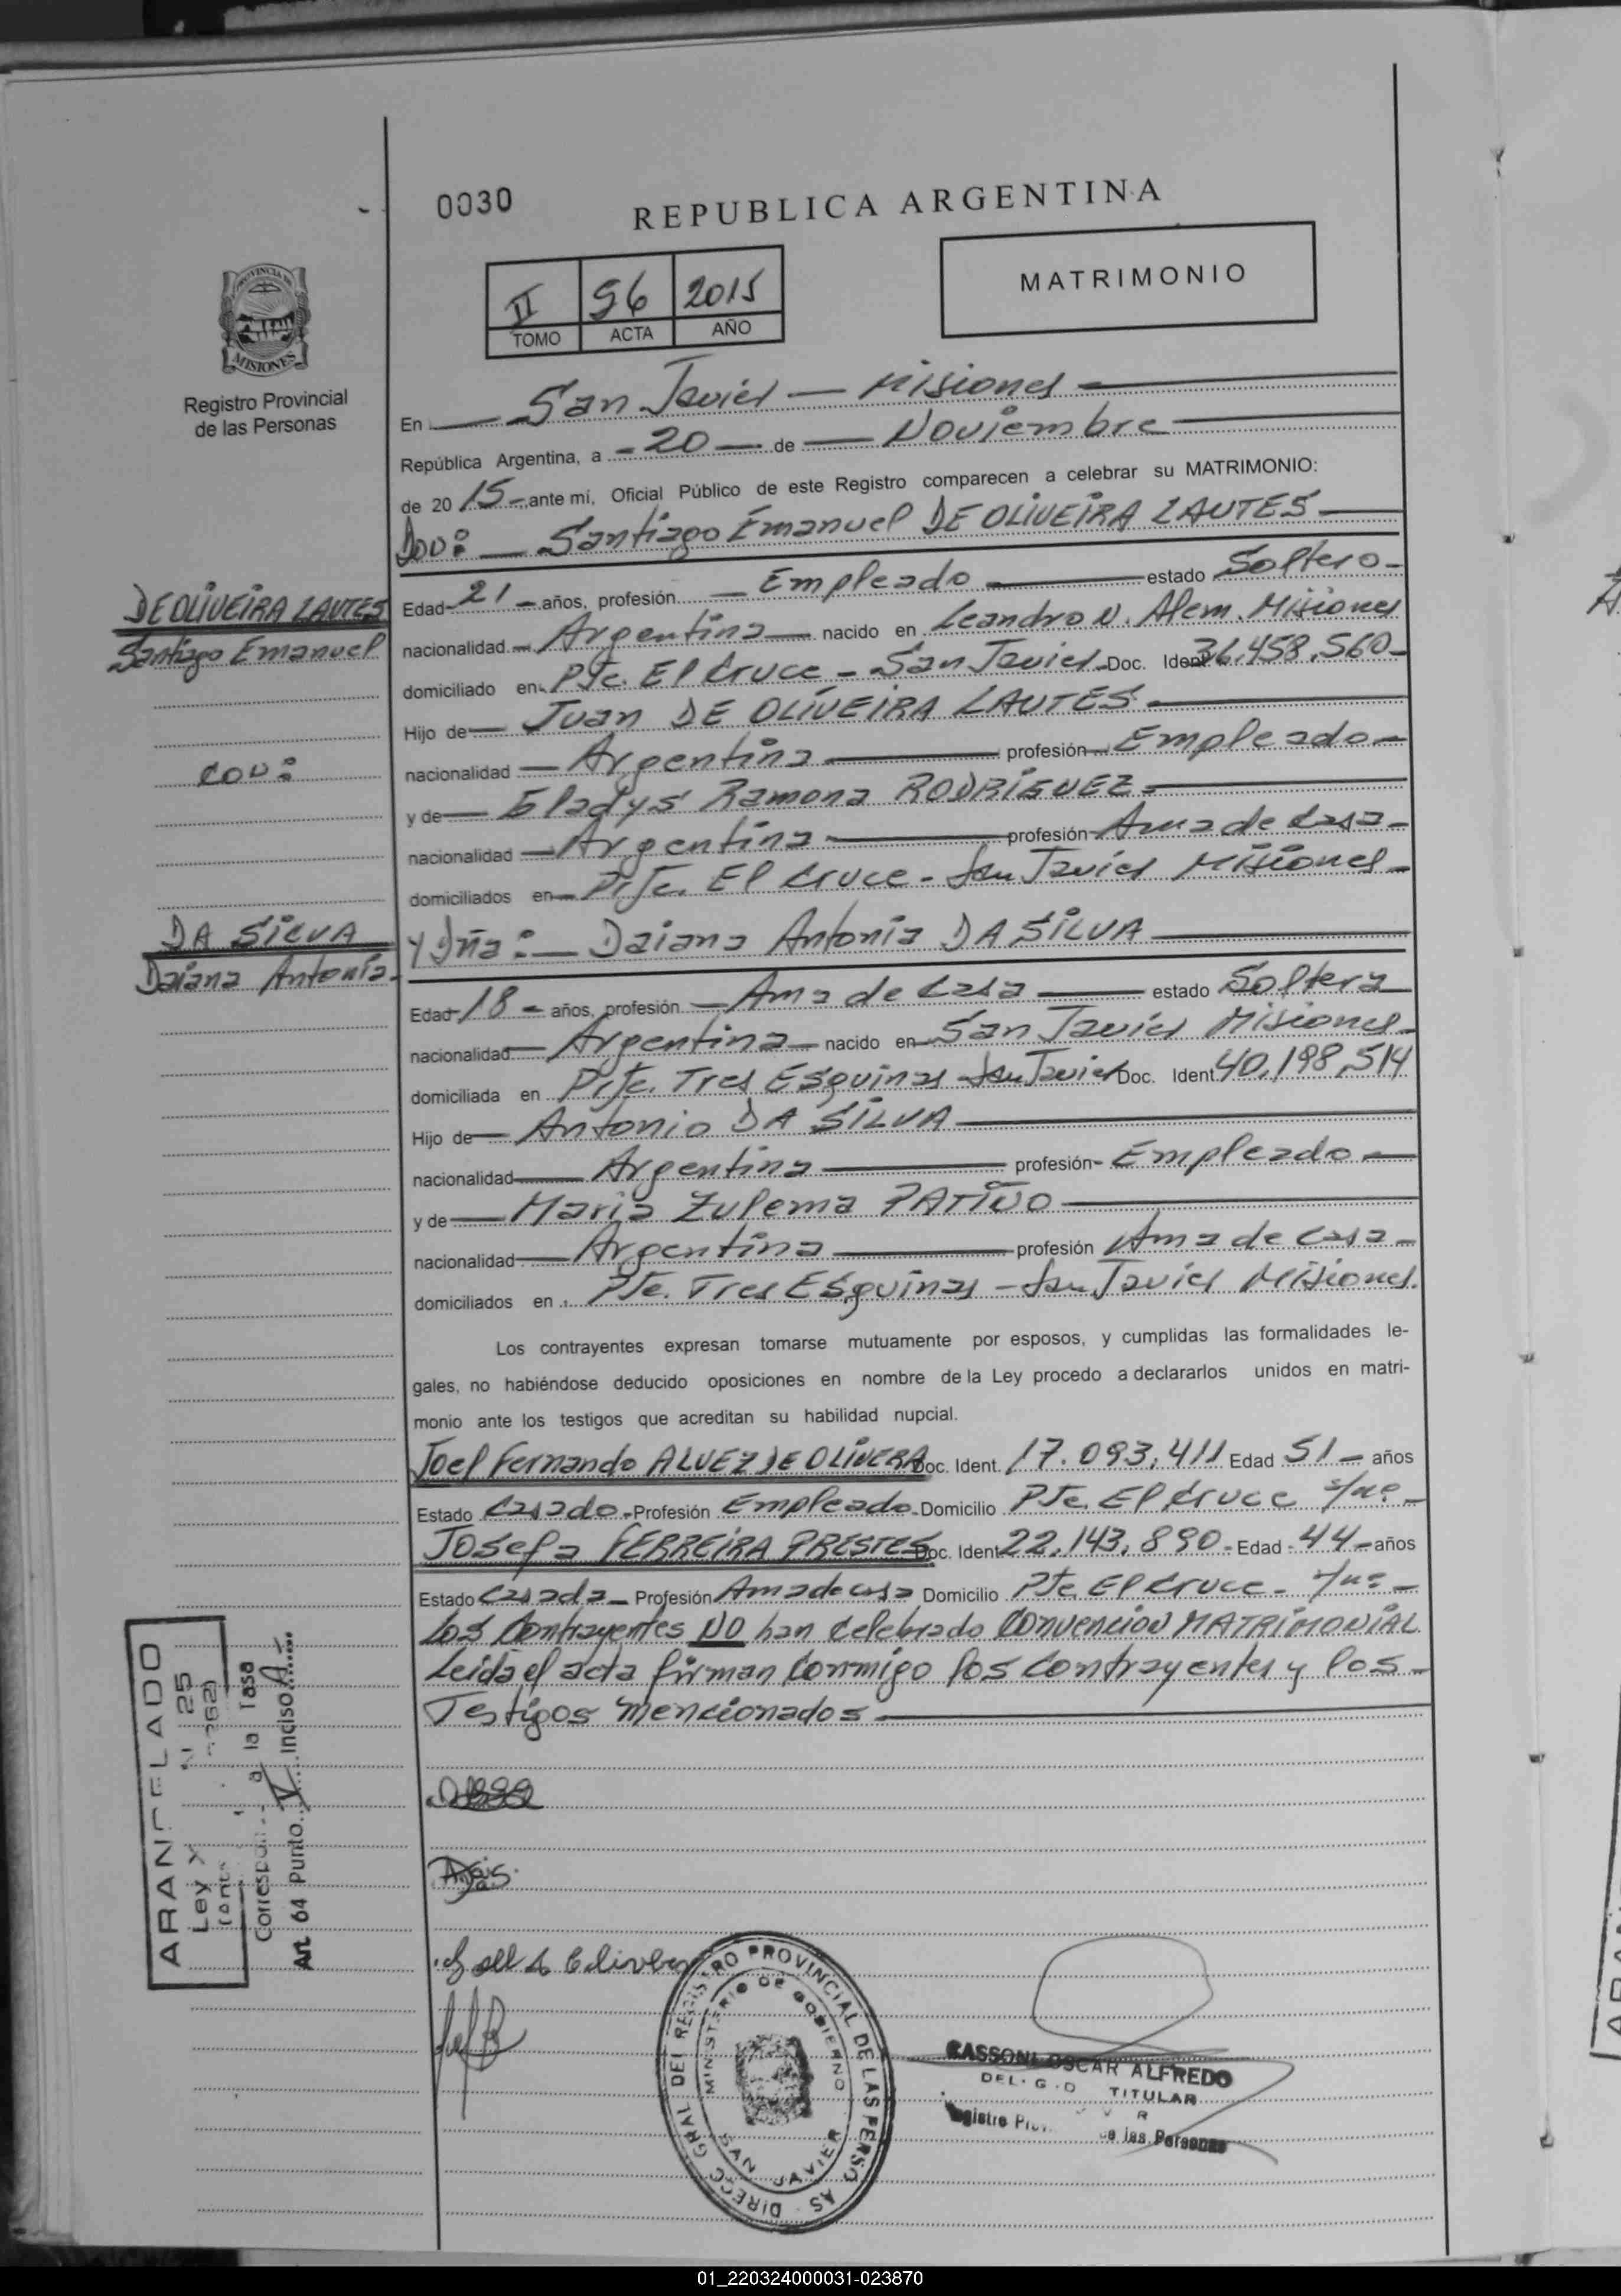 0030
REPUBLICA ARGENTINA
PROVINCIA DE
MISIONES
Registro Provincial
de las Personas
II 56 2015
TOMO ACTA AÑO
MATRIMONIO
En San Javier - Misiones
República Argentina, a 20 de Noviembre
de 2015 ante mí, Oficial Público de este Registro comparecen a celebrar su MATRIMONIO:
Don: Santiago Emanuel DE OLIVEIRA LAUTES
DE OLIVEIRA LAUTES
Santiago Emanuel
Edad 21 años, profesión Empleado estado Soltero
nacionalidad Argentina nacido en Leandro N. Alem. Misiones
domiciliado en Pje. El Cruce - San Javier Doc. Ident. 36.458.560
Hijo de Juan DE OLIVEIRA LAUTES
con:
nacionalidad Argentina profesión Empleado
y de Gladys Ramona RODRIGUEZ
nacionalidad Argentina profesión Ama de Casa
domiciliados en Pje. El Cruce - San Javier Misiones
DA SILVA
Daiana Antonia
Y Dña: Daiana Antonia DA SILVA
Edad 18 años, profesión Ama de Casa estado Soltera
nacionalidad Argentina nacido en San Javier Misiones
domiciliada en Pje. Tres Esquinas San Javier Doc. Ident. 40.198.514
Hijo de Antonio DA SILVA
nacionalidad Argentina profesión Empleado
y de Maria Zulema PATIÑO
nacionalidad Argentina profesión Ama de Casa
domiciliados en Pje. Tres Esquinas - San Javier Misiones.
Los contrayentes expresan tomarse mutuamente por esposos, y cumplidas las formalidades le-
gales, no habiéndose deducido oposiciones en nombre de la Ley procedo a declararlos unidos en matri-
monio ante los testigos que acreditan su habilidad nupcial.
Joel Fernando ALVEZ DE OLIVERA Doc. Ident. 17.093.411 Edad 51 años
Estado Casado Profesión Empleado Domicilio Pje. El Cruce s/nº
Josefa FERREIRA PRESTES Doc. Ident. 22.143.890 Edad 44 años
Estado Casada Profesión Ama de casa Domicilio Pje. El Cruce s/nº
Los Contrayentes NO han Celebrado CONVENCION MATRIMONIAL
Leida el acta firman Conmigo los Contrayentes y los
Testigos mencionados
ARANCELADO
Ley X N 25
Corresponde a la Tasa
Art. 64 Punto V inciso A
DIRECC GRAL DEL REGISTRO PROVINCIAL DE LAS PERSONAS
MINISTERIO DE GOBIERNO
SAN JAVIER
OSCAR ALFREDO
TITULAR
Registro de las Personas
01_220324000031-023870